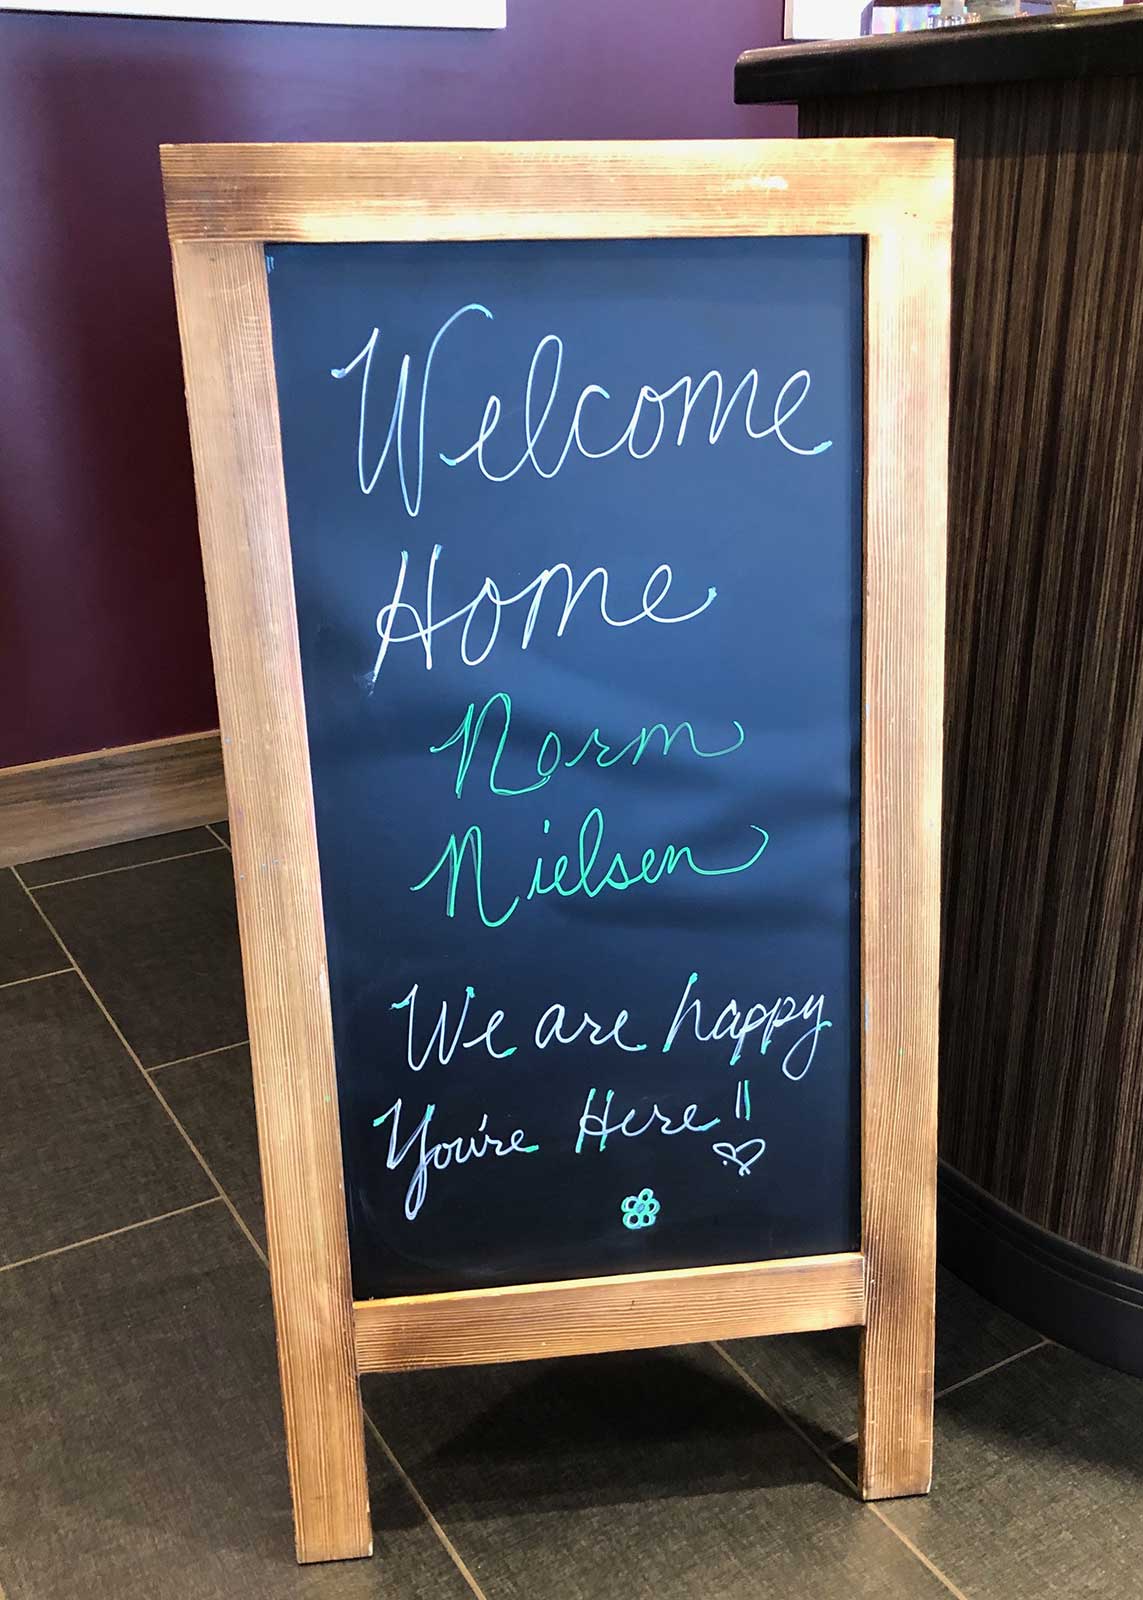 Welcome
Home
Norm
Nielsen
We are happy
You're Here!!